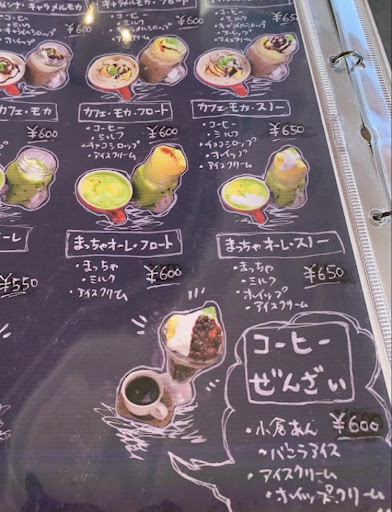 キャラメルモカ
キャラメルモカ・フロート
・コーヒー
・ミルク
¥600
¥600
¥650
・ホイップ
・アイスクリーム
カフェ・モカ
カフェ・モカ・フロート
カフェ・モカ・スノー
¥600
・コーヒー
・ミルク
・チョコシロップ
・アイスクリーム
¥600
・コーヒー
・ミルク
・チョコシロップ
・ホイップ
・アイスクリーム
¥650
ーレ
まっちゃオーレ・フロート
まっちゃオーレ・スノー
¥550
・まっちゃ
・ミルク
・アイスクリーム
¥600
・まっちゃ
・ミルク
・ホイップ
・アイスクリーム
¥650
コーヒー
ぜんざい
・小倉あん
¥600
・アイスクリーム
・ホイップクリーム